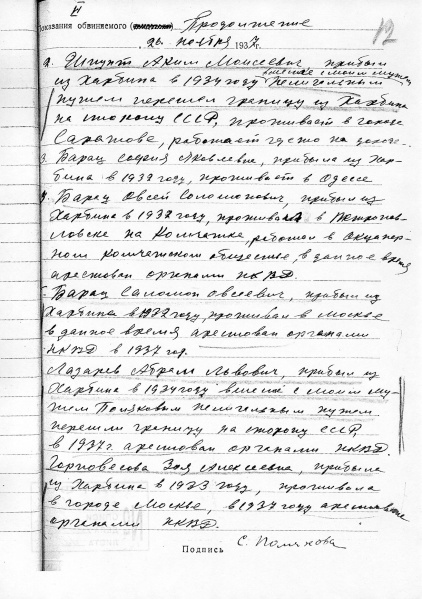 II
Показания обвиняемого (свидетеля) Продолжение
26 ноября 1937г.
12
2. Шпунт Яким Моисеевич, прибыл
из Харбина в 1934 году вместе с моим мужем нелегальным
путем перешел границу из Харбина
на сторону СССР, проживает в городе
Саратове, работает
3. Барац София Яковлевна, прибыла из Хар-
бина в 1932 году, проживает в Одессе
4. Барац Овсей Соломонович, прибыл из
Харбина в 1932 году, проживал в Петропав-
ловске на Камчатке, работал в Акционер-
ном Камчатском обществе, в данное время
арестован органами НКВД.
Барац Саломон Овсеевич, прибыл из
Харбина в 1932 году, проживал в Москве
в данное время арестован органами
НКВД в 1937 год.
Лазарев Абрам Львович, прибыл из
Харбина в 1934 году вместе с моим му-
жем Поляковым нелегальным путем
перешли границу на сторону СССР,
в 1937 г. арестован органами НКВД.
Зоя Алексеевна, прибыла
из Харбина в 1933 году, проживала
в городе Москве, в 1937 году арестована
органами НКВД.
Подпись С. Полякова